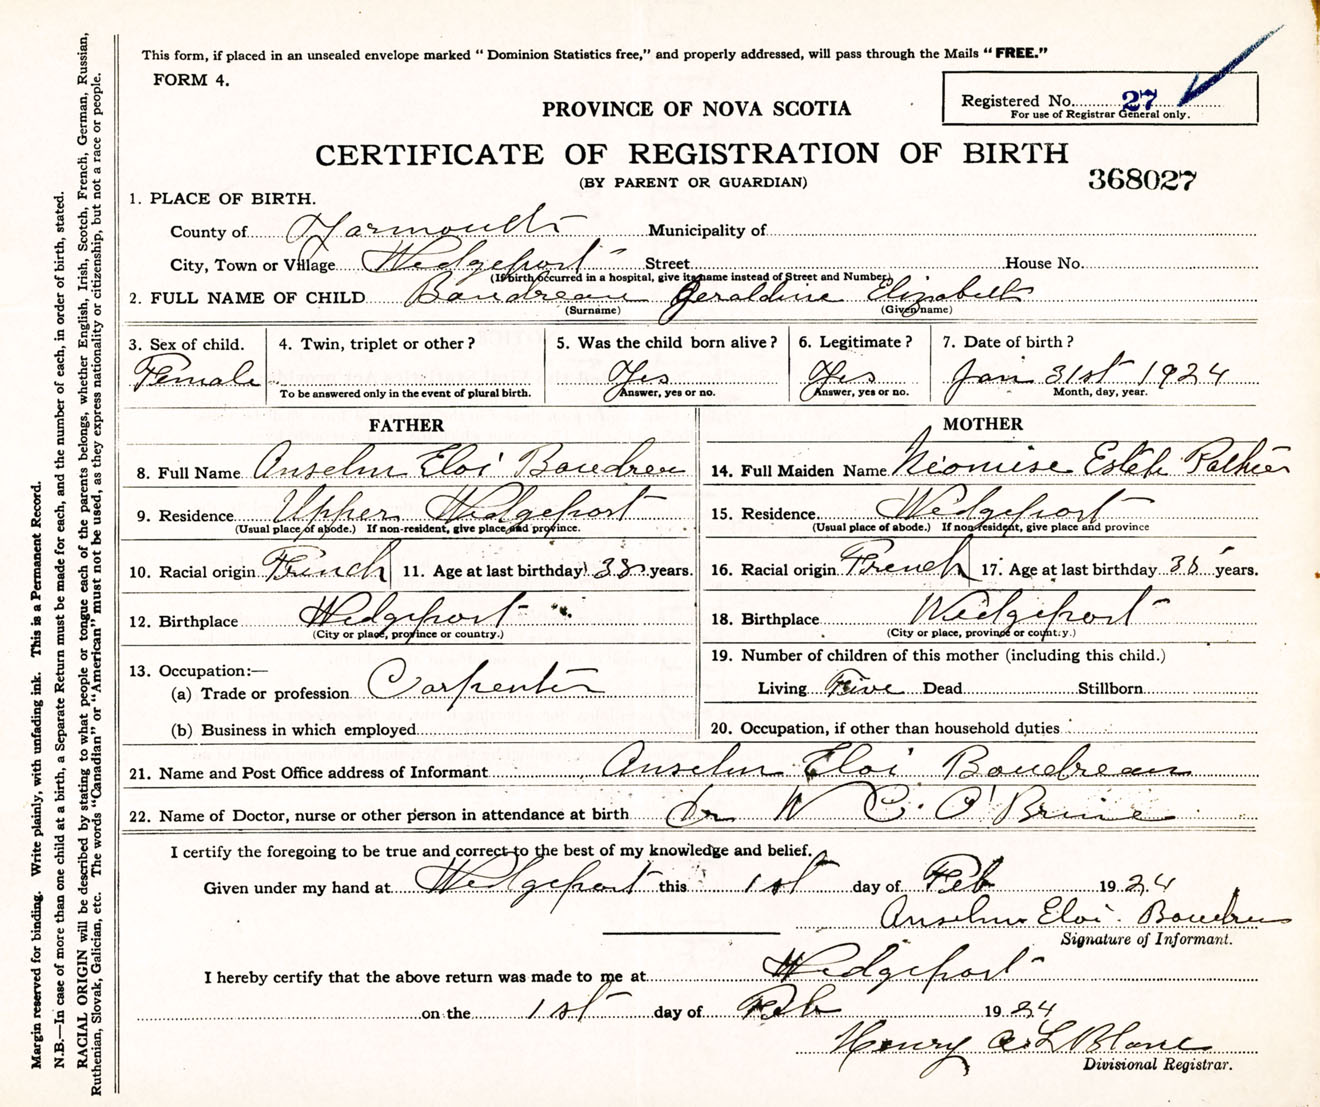 This form, if placed in an unsealed envelope marked “ Dominion Statistics free,” and properly addressed, will pass through the Mails “ FREE.”
FORM 4.
PROVINCE OF NOVA SCOTIA
Registered No. 27
For use of Registrar General only.
CERTIFICATE OF REGISTRATION OF BIRTH
(BY PARENT OR GUARDIAN)
368027
1. PLACE OF BIRTH.
County of Yarmouth Municipality of
City, Town or Village Wedgeport Street House No.
(If birth occurred in a hospital, give its name instead of Street and Number)
2. FULL NAME OF CHILD Boudreau Geraldine Elizabeth
(Surname) (Given name)
3. Sex of child. 4. Twin, triplet or other ? 5. Was the child born alive ? 6. Legitimate ? 7. Date of birth ?
Female Yes Yes Jan 31st 1924
To be answered only in the event of plural birth. Answer, yes or no. Answer, yes or no. Month, day, year.
FATHER MOTHER
8. Full Name Anselm Eloi Boudreau 14. Full Maiden Name
9. Residence Upper Wedgeport 15. Residence Wedgeport
(Usual place of abode.) If non-resident, give place and province. (Usual place of abode.) If non-resident, give place and province
10. Racial origin French 11. Age at last birthday 38 years. 16. Racial origin French 17. Age at last birthday years.
12. Birthplace Wedgeport 18. Birthplace Wedgeport
(City or place, province or country.) (City or place, province or country.)
13. Occupation:— 19. Number of children of this mother (including this child.)
(a) Trade or profession Carpenter Living Five Dead Stillborn
(b) Business in which employed 20. Occupation, if other than household duties
21. Name and Post Office address of Informant Anselm Eloi Boudreau
22. Name of Doctor, nurse or other person in attendance at birth Dr W C. O'Brine
I certify the foregoing to be true and correct to the best of my knowledge and belief.
Given under my hand at Wedgeport this 1st day of Feb 1924
Anselm Eloi Boudreau
Signature of Informant.
I hereby certify that the above return was made to me at Wedgeport
on the 1st day of Feb 1924
Henry A. LeBlanc
Divisional Registrar.
Margin reserved for binding. Write plainly, with unfading ink. This is a Permanent Record.
N.B.—In case of more than one child at a birth, a Separate Return must be made for each, and the number of each, in order of birth, stated.
RACIAL ORIGIN will be described by stating to what people or tongue each of the parents belongs, whether English, Irish, Scotch, French, German, Russian,
Ruthenian, Slovak, Galician, etc. The words “Canadian” or “American” must not be used, as they express nationality or citizenship, but not a race or people.